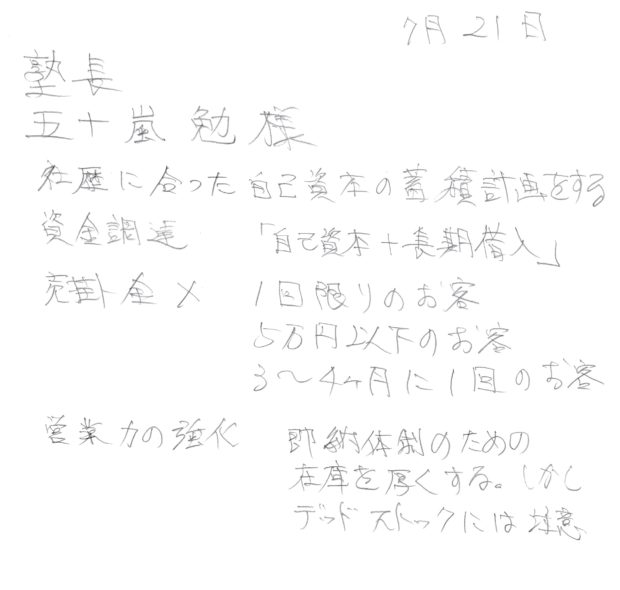 7月21日
塾長
五十嵐勉様
社歴に合った自己資本の蓄積計画をする
資金調達 「自己資本+長期借入」
売掛金 × 1回限りのお客
5万円以下のお客
3～4ヶ月に1回のお客
営業力の強化 即納体制のための
在庫を厚くする。しかし
デッドストックには注意